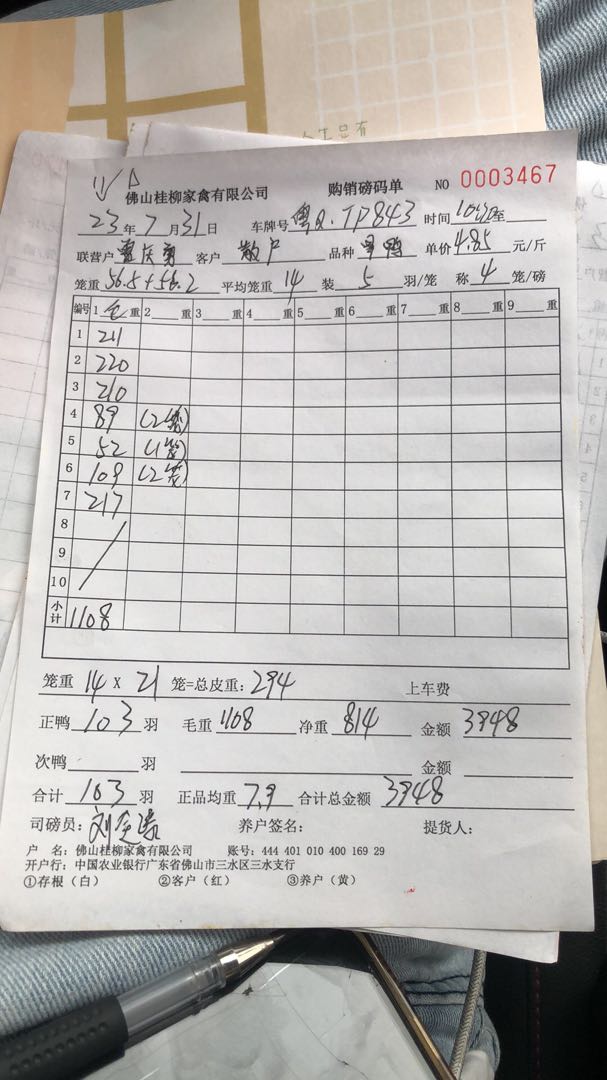 佛山桂柳家禽有限公司 购销磅码单 NO 0003467
23年7月31日 车牌号粤Q·TP843 时间 至
联营户 客户散户 品种 鸭 单价4.85元/斤
笼重56.5+56.2 平均笼重14 装5羽/笼 称4笼/磅
编号 1毛重 2重 3重 4重 5重 6重 7重 8重 9重
1 211
2 220
3 210
4 89 (2笼)
5 52 (1笼)
6 109 (2笼)
7 217
8
9
10
小计 1108
笼重14X21笼=总皮重:294 上车费
正鸭103羽 毛重1108 净重814 金额3948
次鸭 羽 金额
合计103羽 正品均重7.9 合计总金额3948
司磅员:刘 养户签名: 提货人:
户 名:佛山桂柳家禽有限公司 账号:444 401 010 400 169 29
开户行:中国农业银行广东省佛山市三水区三水支行
①存根(白) ②客户(红) ③养户(黄)